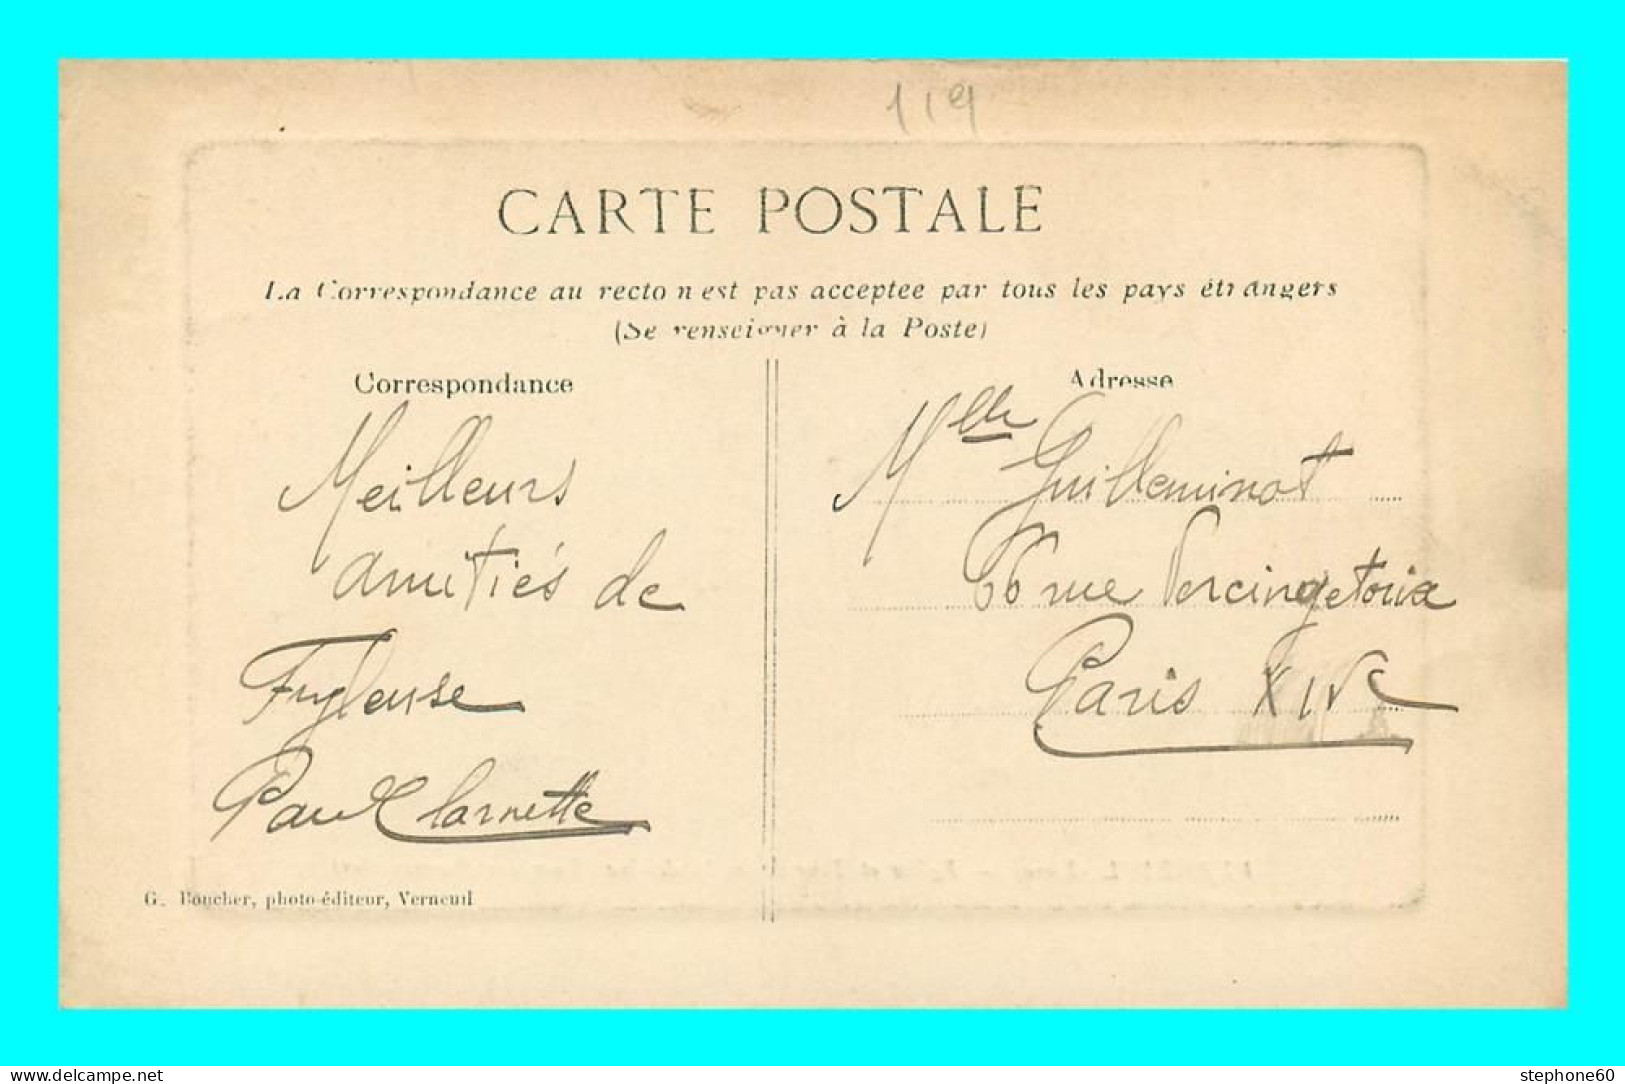 119
CARTE POSTALE
La Correspondance au recto n'est pas acceptee par tous les pays étrangers
(Se renseigner à la Poste)
Correspondance
Adresse
Meilleurs
amitiés de
Paul Clarnette
Mlle Guilleminot
66 rue Vercingetorix
Paris XIVe
G. Foucher, photo-éditeur, Verneuil
www.delcampe.net
stephone60